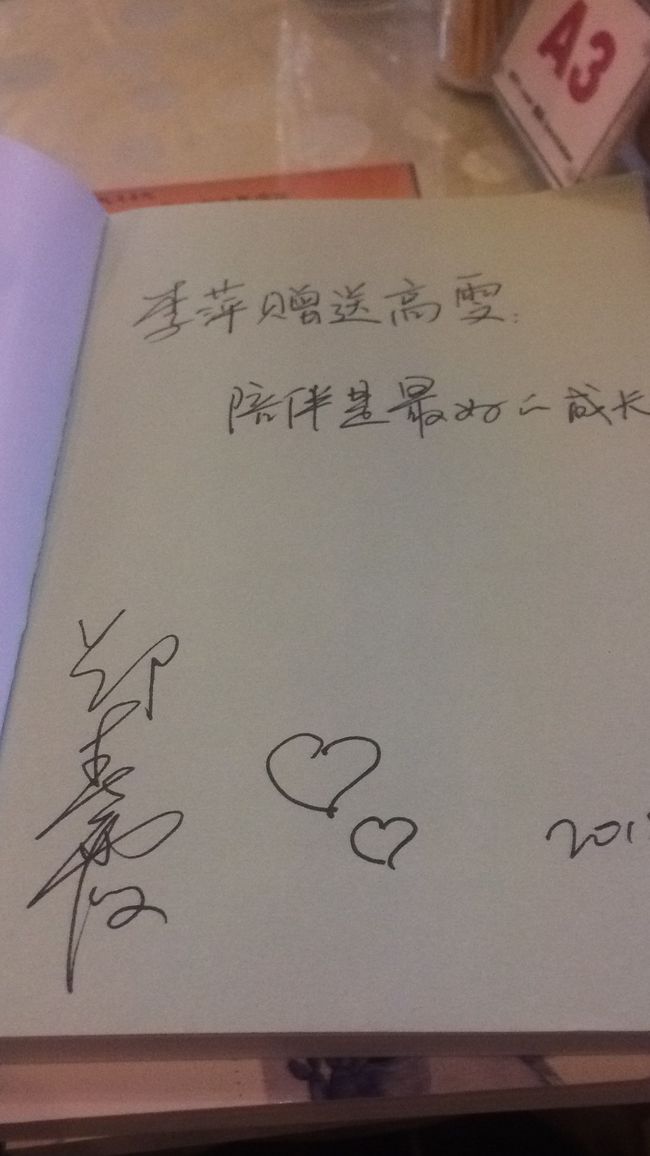 A3
李萍赠送高雯:
陪伴是最好的成长
郑春霞
201